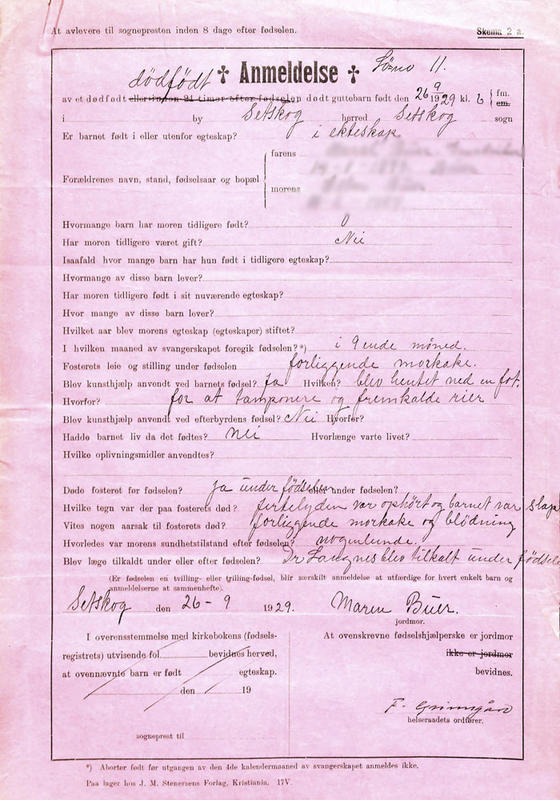 At avlevere til sogneprесten inden 8 dage efter fødselen.
Skema 2 a.
dödfödt ✝ Anmeldelse ✝ Löpno 11.
av et dødfødt eller inden 24 timer efter fødselen dødt guttebarn født den 26/9 1929 kl. 6 fm. em.
i by Setskog herred Setskog sogn
Er barnet født i eller utenfor egteskap? i ekteskap
farens
Forældrenes navn, stand, fødselsaar og bopæl
morens
Hvormange barn har moren tidligere født? 0
Har moren tidligere været gift? Nei
Isaafald hvor mange barn har hun født i tidligere egteskap?
Hvormange av disse barn lever?
Har moren tidligere født i sit nuværende egteskap?
Hvor mange av disse barn lever?
Hvilket aar blev morens egteskap (egteskaper) stiftet?
I hvilken maaned av svangerskapet foregik fødselen?*) i 9ende måned.
Fosterets leie og stilling under fødselen forliggende morkake.
Blev kunsthjælp anvendt ved barnets fødsel? Ja Hvilken? blev hentet ned en fot.
Hvorfor? for at tamponere og fremkalde rier
Blev kunsthjælp anvendt ved efterbyrdens fødsel? Nei Hvorfor?
Hadde barnet liv da det fødtes? nei Hvorlænge varte livet?
Hvilke oplivningsmidler anvendtes?
Døde fosteret før fødselen? Ja under fødselen eller under fødselen?
Hvilke tegn var der paa fosterets død? fosterlyden var ophört og barnet var slap
Vites nogen aarsak til fosterets død? forliggende morkake og blödning
Hvorledes var morens sundhetstilstand efter fødselen? nogenlunde.
Blev læge tilkaldt under eller efter fødselen? Dr Langnes blev tilkalt under födselen
(Er fødselen en tvilling- eller trilling-fødsel, blir særskilt anmeldelse at utfærdige for hvert enkelt barn og
anmeldelserne at sammenhefte).
Setskog den 26 - 9 1929. Maren Buer.
jordmor.
I overensstemmelse med kirkebokens (fødsels-
registrets) utvisende fol. bevidnes herved,
at ovennævnte barn er født egteskap.
den 19
sogneprest til
At ovenskrevne fødselshjælperske er jordmor
ikke er jordmor
bevidnes.
F. Grimsgård
helseraadets ordfører.
*) Aborter født før utgangen av den 4de kalendermaaned av svangerskapet anmeldes ikke.
Paa lager hos J. M. Stenersens Forlag, Kristiania. 17V.